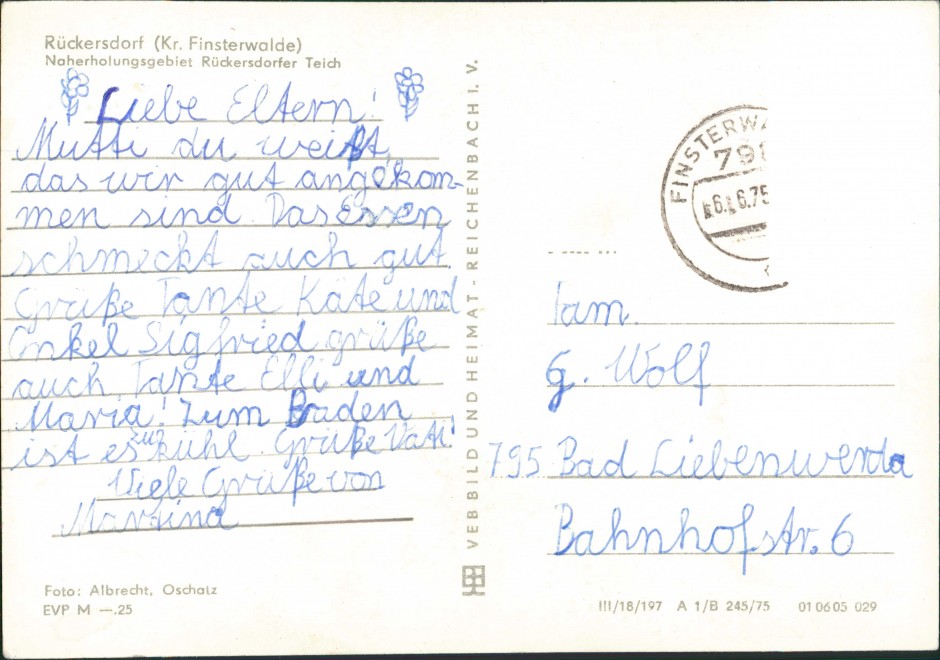 Rückersdorf (Kr. Finsterwalde)
Naherholungsgebiet Rückersdorfer Teich
Liebe Eltern!
Mutti du weißt,
das wir gut angekom-
men sind. Das Essen
schmeckt auch gut.
Grüße Tante Käte und
Onkel Sigfried grüße
auch Tante Elli und
Maria! Zum Baden
ist es zu kühl. Grüße Vati!
Viele Grüße von
Martina
Foto: Albrecht, Oschatz
EVP M —.25
VEB BILD UND HEIMAT · REICHENBACH I. V.
FINSTERWA
791
6.6.75
Fam.
G. Wolf
795 Bad Liebenwerda
Bahnhofstr. 6
III/18/197 A 1/B 245/75 01 06 05 029